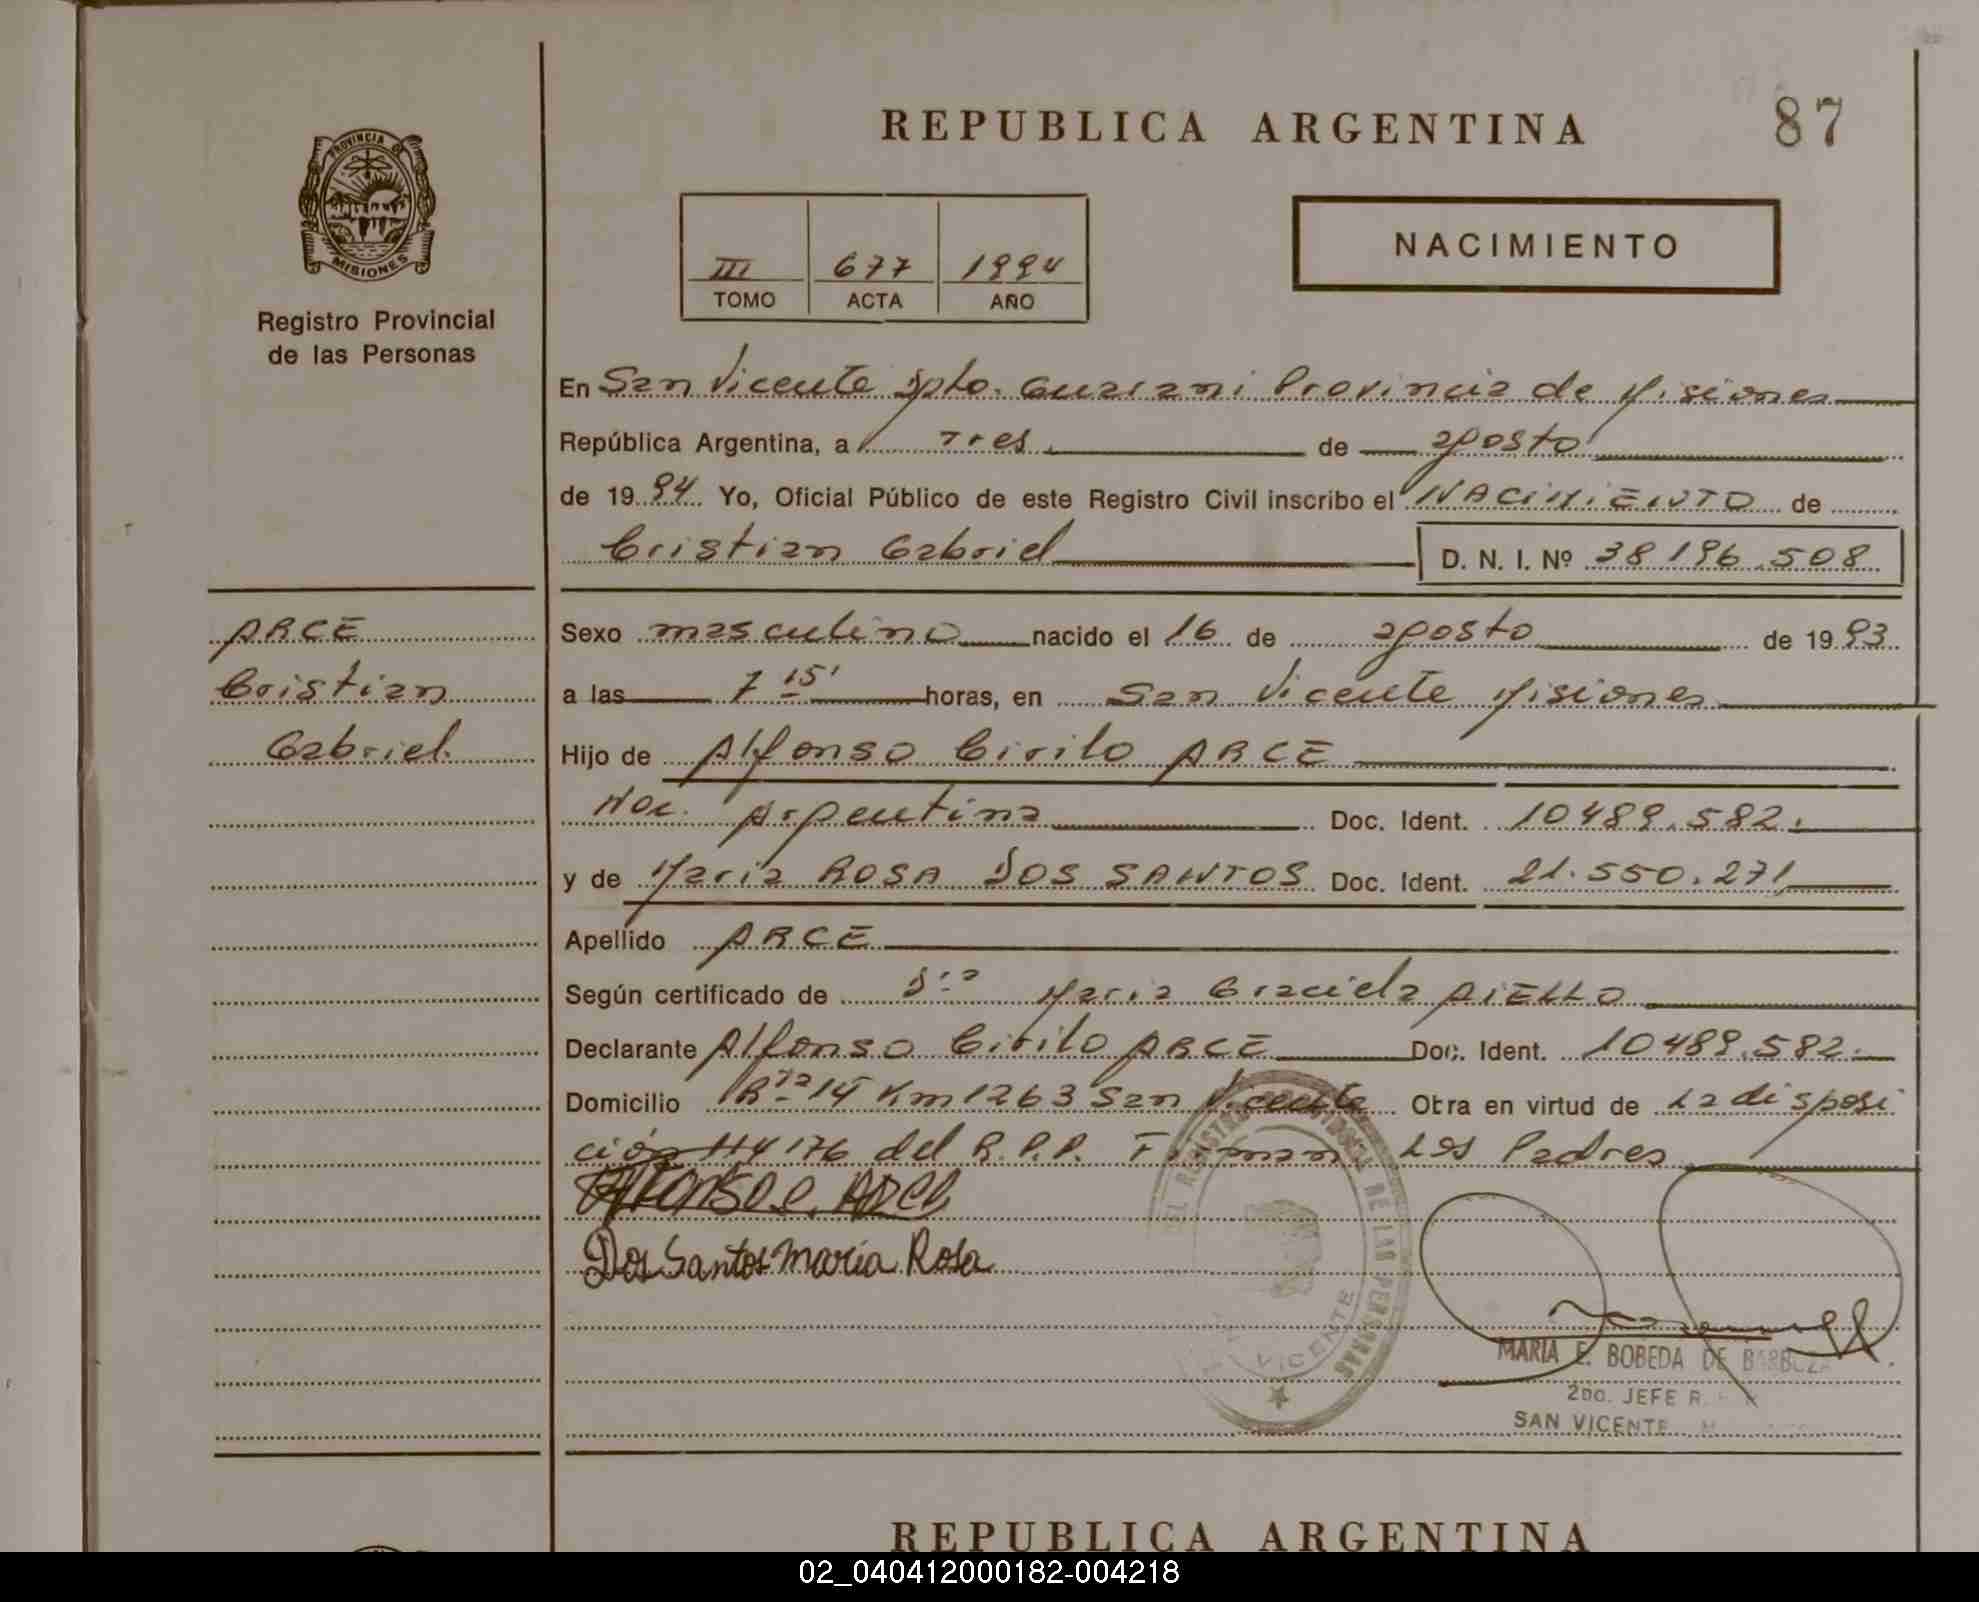 REPUBLICA ARGENTINA
87
PROVINCIA DE
MISIONES
Registro Provincial
de las Personas
III 677 1994
TOMO ACTA AÑO
NACIMIENTO
En San Vicente Dpto. Guarani Provincia de Misiones
República Argentina, a Tres de agosto
de 19 94 Yo, Oficial Público de este Registro Civil inscribo el NACIMIENTO de
Cristian Gabriel D. N. I. Nº 38196.508
ARCE
Cristian
Gabriel
Sexo masculino nacido el 16 de agosto de 19 93
a las 7 15' horas, en San Vicente Misiones
Hijo de Alfonso Cirilo ARCE
Nac. Argentina Doc. Ident. 10489.582.
y de Maria ROSA DOS SANTOS Doc. Ident. 21.550.271
Apellido ARCE
Según certificado de Dra Maria Graciela AIELLO
Declarante Alfonso Cirilo ARCE Doc. Ident. 10489.582.
Domicilio Rta 14 Km 1263 San Vicente Otra en virtud de La disposi
ción 114/176 del R.P.P. Firman Los Padres
Alfonso C. ARCE
Dos Santos Maria Rosa
REGISTRO DE LAS PERSONAS
VICENTE
MARIA E. BOBEDA DE BARBOZA
2DO. JEFE R.
SAN VICENTE
REPUBLICA ARGENTINA
02_040412000182-004218